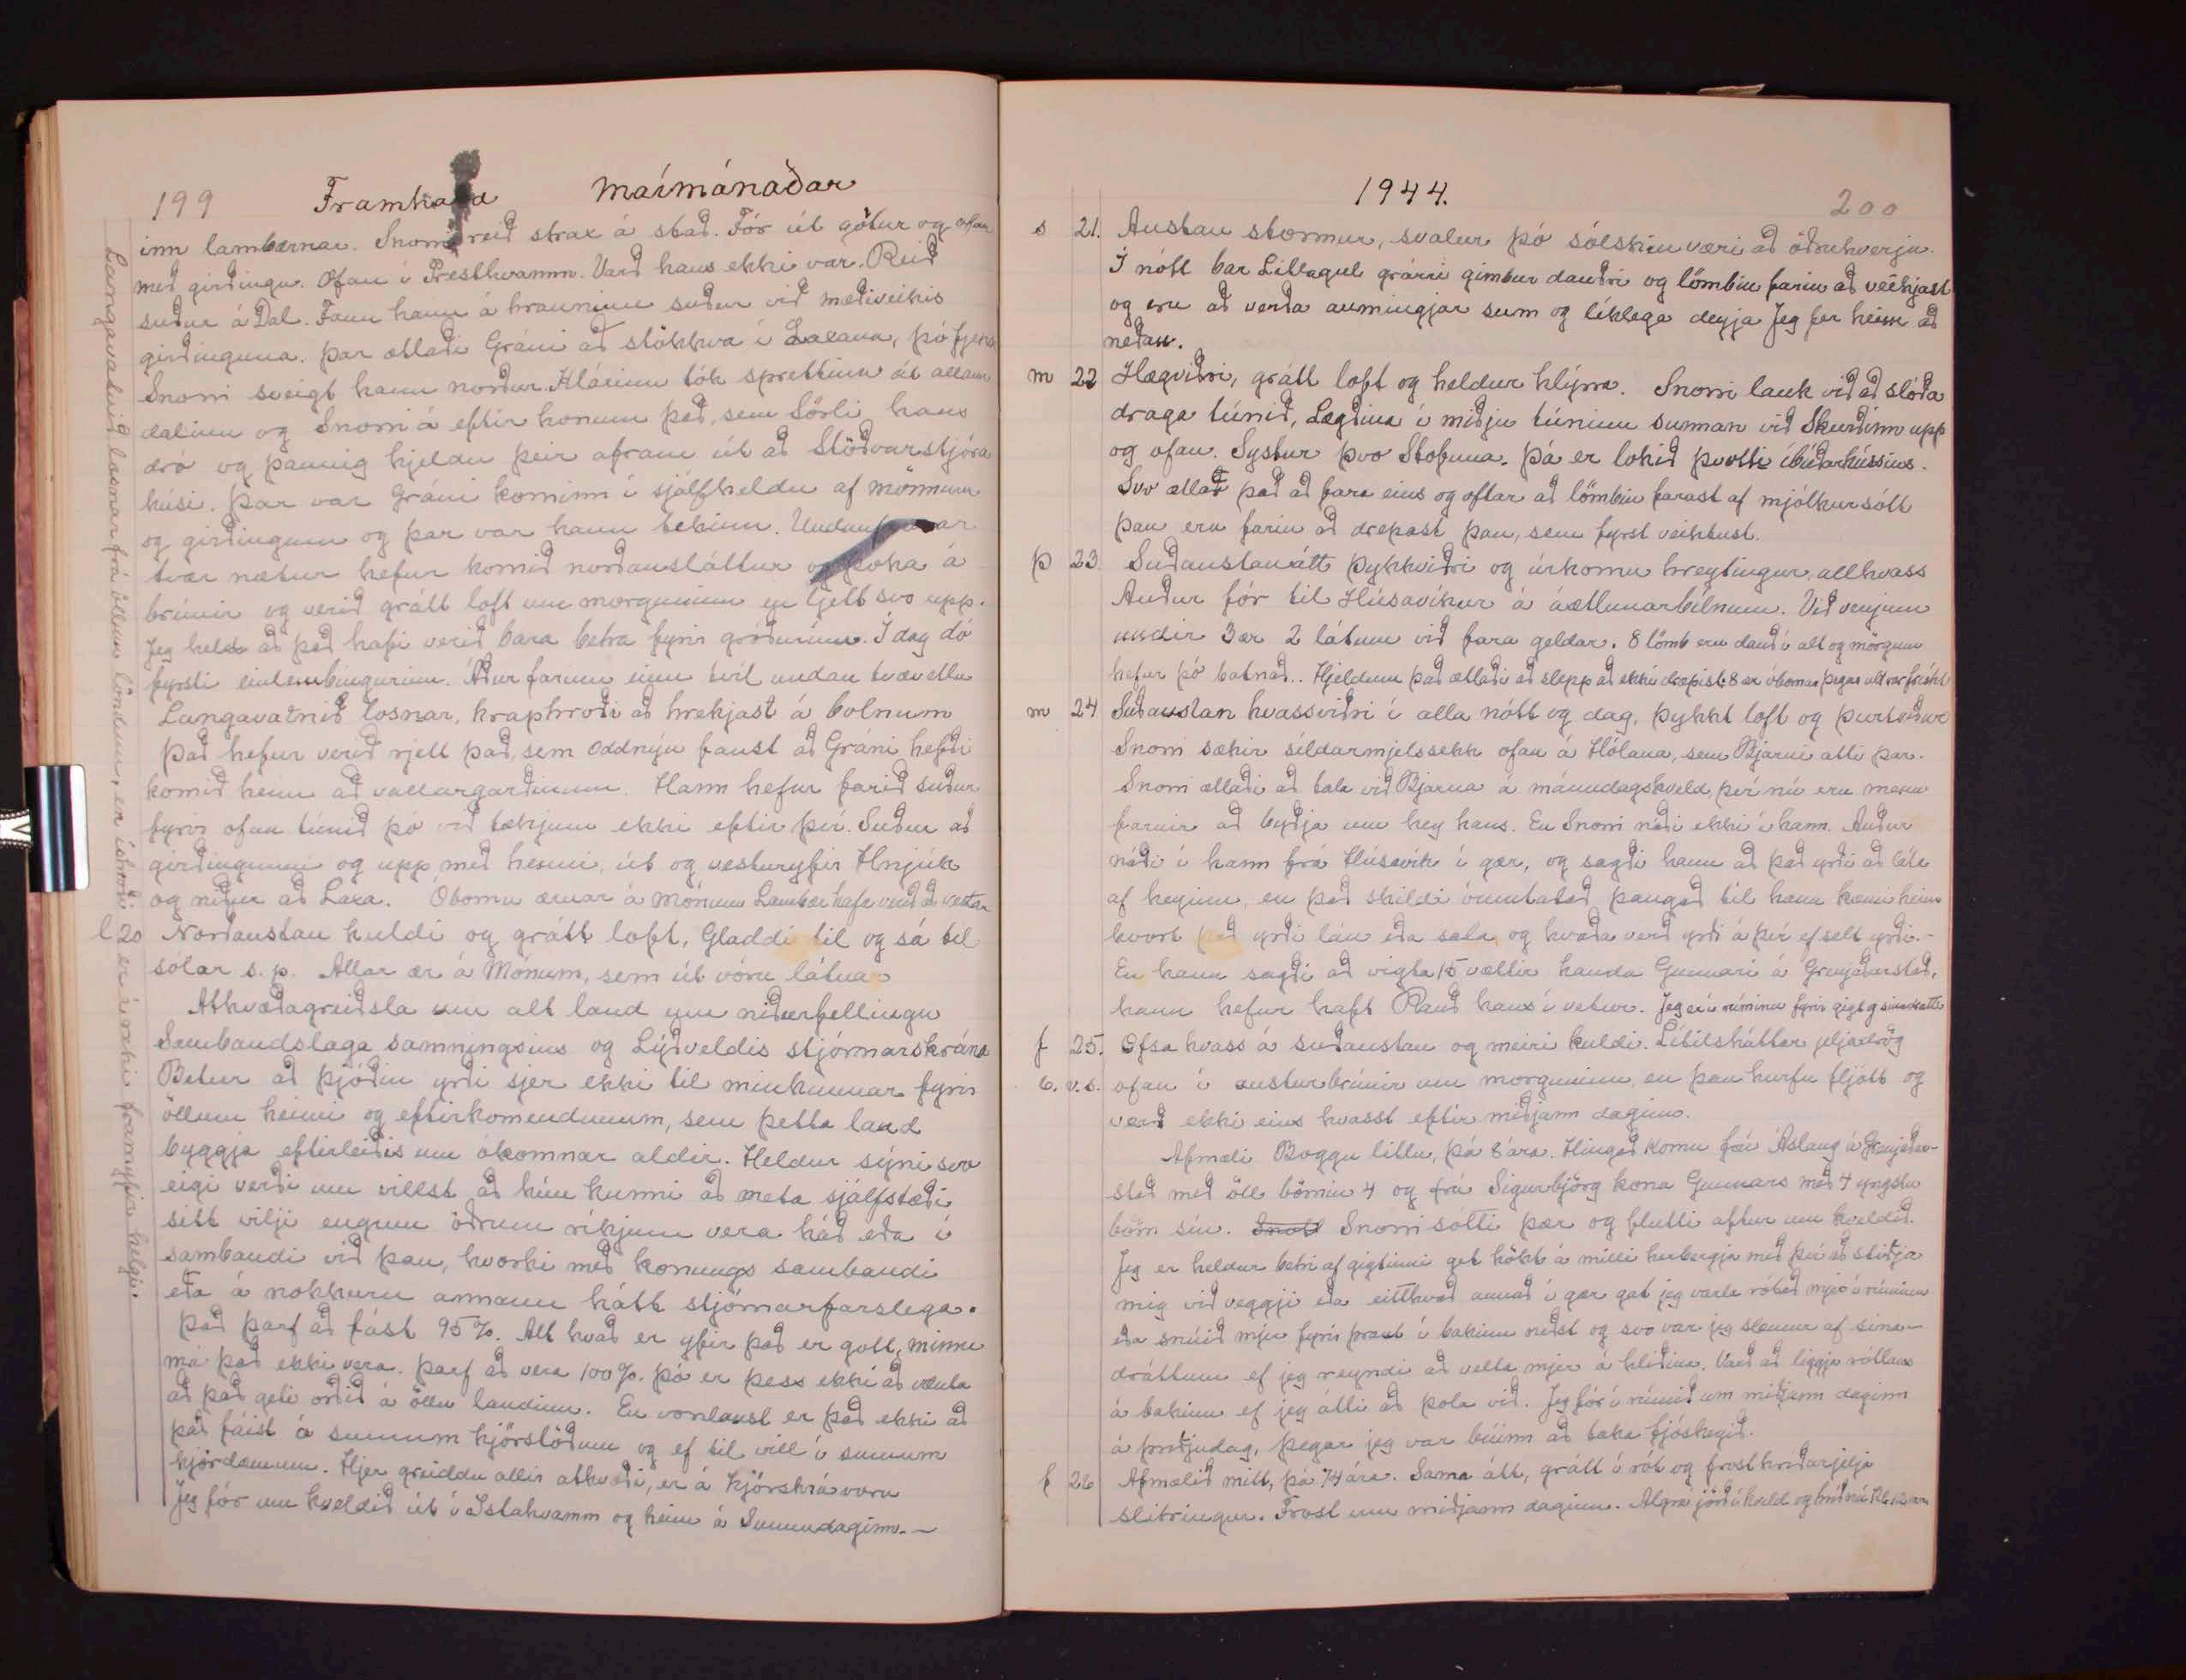 199 Framhald Maímánaðar
inn lambærnar. Snorri reið strax á stað. Fór út götur og ofan
með girðingu. Ofan í Presthvamm. Varð hans ekki var. Reið
suður á Dal. Fann hann á hrauninu suður við mæðiveikis
girðinguna. Þar ætlaði Gráni að stökkva í Laxána, þó fjekk
Snorri sveigt hann norður. Klárinn tók sprettinn út allann
dalinn og Snorri á eftir honum það, sem Sörli hans
dró og þannig hjeldu þeir áfram út að Stöðvarstjóra
húsi. Þar var Gráni kominn í sjálfheldu af mönnum
og girðingum og þar var hann tekinn. Undanfarnar
tvær nætur hefur komið norðausláttur og þoka á
brúnir og verið grátt loft um morguninn en ljett svo upp.
Jeg held að það hafi verið bara betra fyrir gróðurinn. Í dag dó
fyrsti einlembingurinn. Áður farinn einn tvíl undan tvævetlu
Langavatnið losnar, kraphroði að hrekjast á bolnum
Það hefur verið rjett það, sem Oddnýju fanst að Gráni hefði
komið heim að vallargarðinum. Hann hefur farið suður
fyrir ofan túnið þó við tækjum ekki eftir því. Suður að
girðingunni og upp með henni, út og vesturyfir Hnjúk
og niður að Laxá. Óbornu ærnar á Mónum Lambær hafa verið að vestan
l 20 Norðaustan kuldi og grátt loft, Gladdi til og sá til
sólar s. p. Allar ær á Mónum, sem út vóru látnar
Athvæðagreiðsla um alt land um niðurfellingu
Sambandslaga samningsins og Lýðveldis stjórnarskrána
Betur að þjóðin yrði sjer ekki til minkunnar fyrir
öllum heimi og eftirkomendunum, sem þetta land
byggja eftirleiðis um ókomnar aldir. Heldur sýni svo
eigi verði um villst að hún kunni að meta sjálfstæði
sitt vilji engum öðrum ríkjum vera háð eða í
sambandi við þau, hvorki með konungs sambandi
eða á nokkurn annann hátt stjórnarfarslega.
Það þarf að fást 95%. Alt hvað er yfir það er gott, minna
má það ekki vera. Þarf að vera 100%. þó er þess ekki að vænta
að það geti orðið á öllu landinu. En vonlaust er það ekki að
það fáist á sumum kjörstöðum og ef til vill í sumum
kjördæmum. Hjer greiddu allir athvæði, er á kjörskrá voru
Jeg fór um kveldið út í Ystahvamm og heim á Sunnudaginn.-
Langavatnið losnar frá öllum löndum, en íshroði er á reki framyfir helgi.
1944. 200
s 21. Austan stormur, svalur þó sólskin væri að öðruhverju.
Í nótt bar Litlagul grárri gimbur dauðri og lömbin farin að veikjast
og eru að verða aumingjar sum og líklega deyja Jeg fer heim að
neðan.
m 22 Hægviðri, grátt loft og heldur hlýrra. Snorri lauk við að slóða
draga túnið, Lægðina í miðju túninu sunnan við Skurðinn upp
og ofan. Systur þvo Stofuna. Þá er lokið þvotti íbúðarhússins.
Svo ætlað það að fara eins og oftar að lömbin farast af mjólkursótt
þau eru farin að drepast þau, sem fyrst veiktust.
þ 23. Suðaustanátt þykkviðri og úrkomu hreytingur, allhvass
Auður fór til Húsavíkur á áætlunarbílnum. Við venjum
undir 3 ær 2 látum við fara geldar. 8 lömb eru dauð í alt og mörgum
hefur þó batnað.. Hjeldum það ætlaði að sleppa að ekki dræpist. 8 ær óbornar þegar alt var frískt
m 24 Suðaustan hvassviðri í alla nótt og dag, þykkt loft og þurtveður
Snorri sækir síldarmjelssekk ofan á Hólana, sem Bjarni átti þar.
Snorri ætlaði að tala við Bjarna á mánudagskveld, því nú eru menn
farnir að byðja um hey hans. En Snorri náði ekki í hann. Auður
náði í hann frá Húsavík í gær, og sagði hann að það yrði að láta
af heyinu, en það skildi óumtalað þangað til hann kæmi heim
hvort það yrði lán eða sala, og hvaða verð yrði á því ef selt yrði.-
En hann sagði að vigta 15 vættir handa Gunnari á Grenjaðarstað,
hann hefur haft Rauð hans í vetur. Jeg er í rúminu fyrir gigt og sinadrætti
f 25. Ofsa hvass á suðaustan og meiri kuldi. Lítilsháttar jeljadrög
6. v. s. ofan í austurbrúnir um morguninn, en þau hurfu fljótt og
varð ekki eins hvasst eftir miðjann daginn.
Afmæli Boggu litlu, þá 8 ára. Hingað komu frú Áslaug á Grenjaðar-
stað með öll börnin 4 og frú Sigurbjörg kona Gunnars með 4 yngstu
börn sín. Snorri sótti þær og flutti aftur um kveldið.
Jeg er heldur betri af gigtinni get hökt á milli herbergja með því að stiðja
mig við veggji eða eitthvað annað í gær gat jeg varla róað mjer í rúminu
eða snúið mjer fyrir þraut í bakinu neðst og svo var jeg slæmur af sina-
dráttum ef jeg reyndi að velta mjer á hliðina. Varð að liggja róttlaus
á bakinu ef jeg átti að þola við. Jeg fór í rúmið um miðjann daginn
á þriðjudag, þegar jeg var búinn að taka fjósheyið.
f 26 Afmælið mitt, þá 74 ára. Sama átt, grátt í rót og frosthríðarjelja
slitringur. Frost um miðjann daginn. Algrá jörð í kveld og hríð